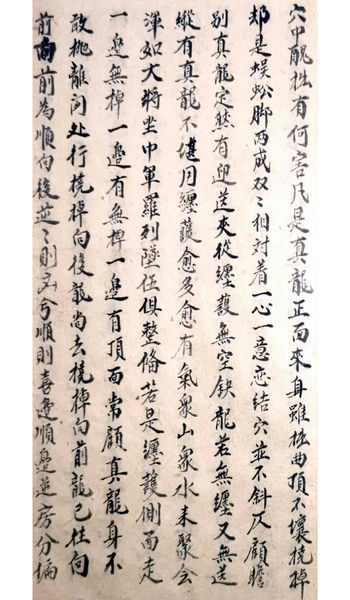 穴中醜拙有何害凡是真龍正面來身雖拙曲頂不壞橈棹
却是蜈蚣脚两成双々相対着一心一意恋結穴並不斜仄顧瞻
別真龍定然有迎送夾從纏護無空缺龍若無纏又無送
縱有真龍不堪用纏護愈多愈有氣衆山衆水来聚会
渾如大將坐中軍羅列隊伍俱整俻若是纏護側面走
一邊無棹一邊有無棹一邊有頂面常顧真龍身不
敢抛離处行橈棹向後龍尚去橈棹向前龍已住向
前向前為順向後逆々則凶兮順則喜邊順邊逆房分偏